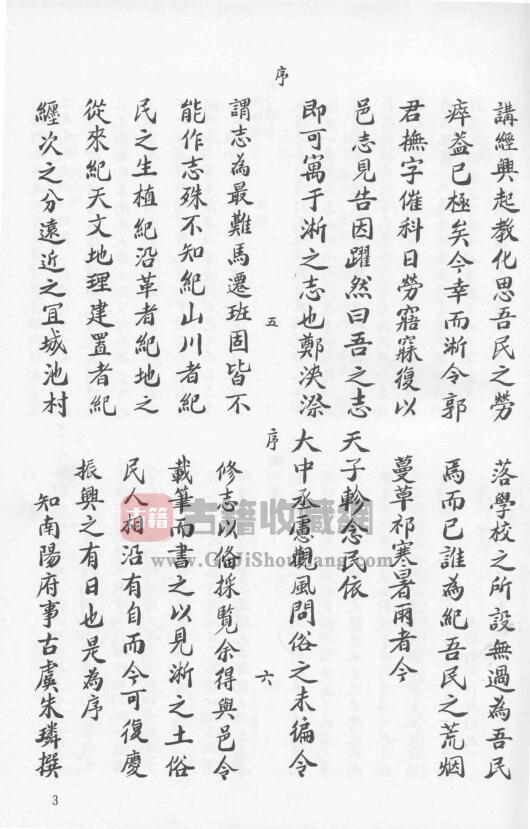 序
講經興起教化思吾民之勞
瘁蓋已極矣今幸而淅令郭
君撫字催科日勞寤寐復以
邑志見告因躍然曰吾之志
即可寓于淅之志也鄭浹漈
五
謂志為最難馬遷班固皆不
能作志殊不知紀山川者紀
民之生植紀沿革者紀地之
從來紀天文地理建置者紀
纏次之分遠近之宜城池村
落學校之所設無過為吾民
焉而已誰為紀吾民之荒烟
蔓草祁寒暑雨者今
天子軫念民依
大中丞慮觀風問俗之未編令
序
六
修志以備採覧余得與邑令
載筆而書之以見淅之土俗
民人相沿有自而今可復慶
振興之有日也是為序
知南陽府事古虞朱璘撰
3
古籍
古籍收藏網
www.GuJiShouCang.com